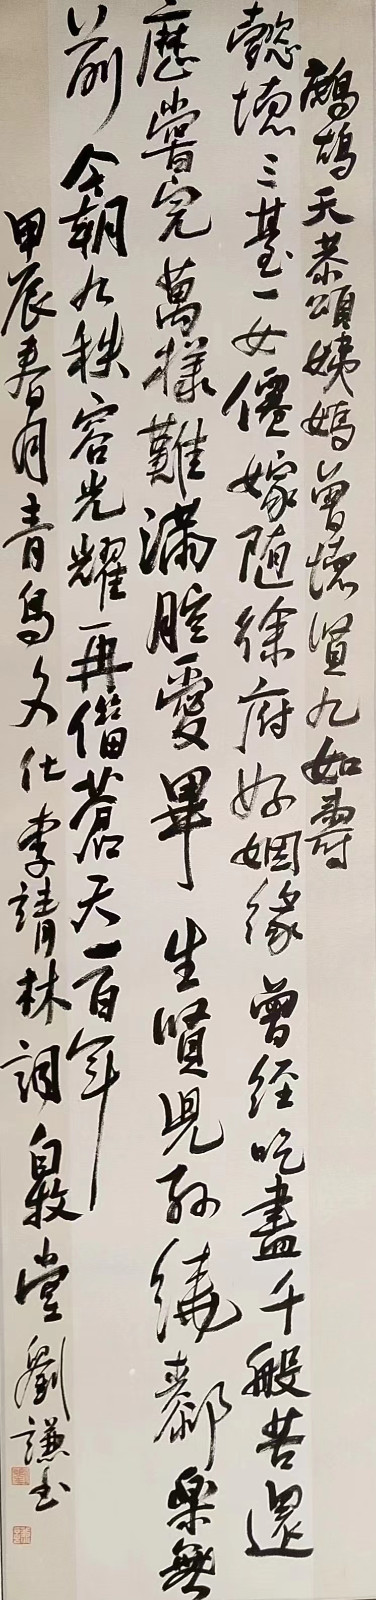 鷓鴣天恭頌姨媽曾德賢九如壽
懿德三臺一女僊嫁随徐府好姻缘曾经吃盡千般苦還
歷嘗完萬樣難滿腔愛畢生賢兒孙繞膝樂無
前今朝九秩容光耀再借蒼天一百年
甲辰春月青鳥文仕李靖林詞堂劉謙书